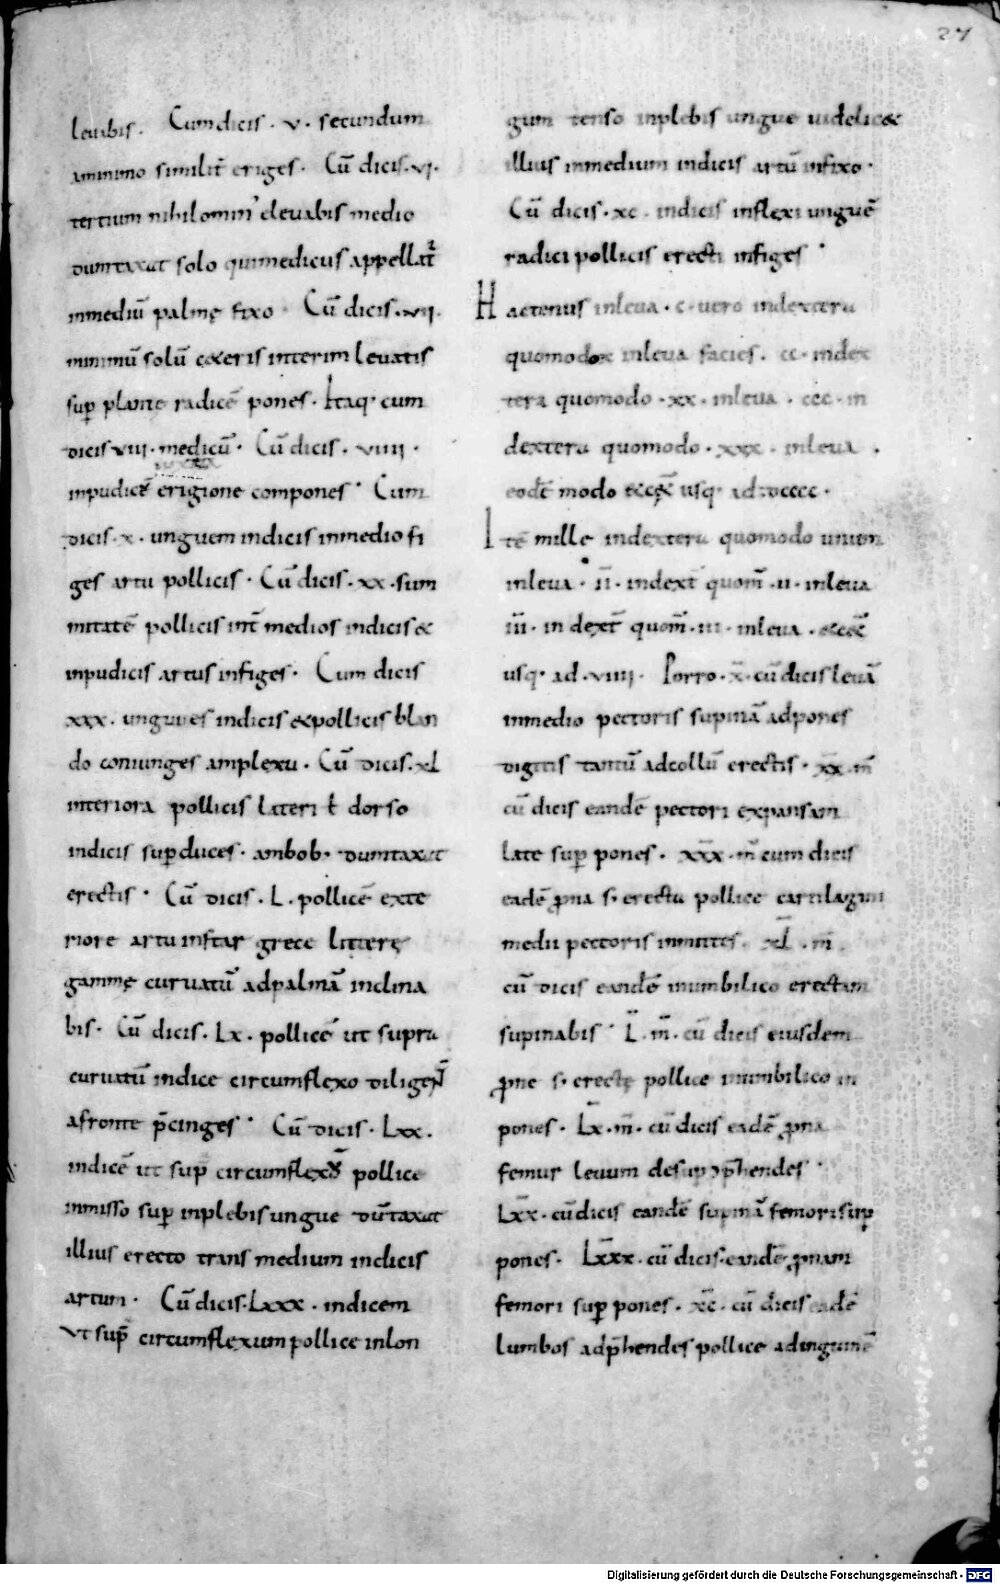 27
leuabis. Cum dicis . v . secundum
aminimo similit̄ eriges . Cū dicis . vi .
tertium nihilomin' eleuabis medio
dumtaxat solo qui medicus appellat̄
inmediū palmę fixo . Cū dicis . vii .
minimū solū ceteris interim leuatis
sup̄ palme radicē pones . Itaq· cum
dicis viii . medicū . Cū dicis . viiii .
inpudicē erigione compones . Cum
dicis . x . unguem indicis inmedio fi
ges artu pollicis . Cū dicis . xx . sum
mitatē pollicis int̄ medios indicis &
inpudicis artus infiges . Cum dicis
xxx . ungues indicis & pollicis blan
do coniunges amplexu . Cū dicis . xL
interiora pollicis lateri ł dorso
indicis sup̄duces . ambob· dumtaxat
erectis . Cū dicis . L . pollicē exte
riore artu instar grece litterę
gammę curuatū ad palmā inclina
bis . Cū dicis . Lx . pollicē ut supra
curuatū indice circumflexo diligent̄
afronte p̄cinges . Cū dicis . Lxx .
indicē ut sup̄ circumflexū pollice
inmisso sup̄ inplebis ungue dūtaxat
illius erecto trans medium indicis
artum . Cū dicis . Lxxx . indicem
Vt sup̄ circumflexum pollice inlon
gum tenso inplebis ungue uidelic&
illius inmedium indicis artū infixo .
Cū dicis . xc . indicis inflexi unguē
radici pollicis erecti infiges .
Hactenus inleua . c . uero indextera
quomodo x inleua facies . cc . index
tera quomodo . xx . inleua . ccc . in
dextera quomodo . xxx . inleua .
eodē modo & cę̄ usq· ad . dcccc .
Itē mille indextera quomodo unum
inleua . īī . indext̄ quom̄ . ii . inleua
īīī . in dext̄ quom̄ . iii . inleua . & cę̄
usq· ad . viiii . Porro . x̄ . cū dicis leuā
inmedio pectoris supinā adpones
digitis tantū adcollū erectis . x̄x̄ . m̄
cū dicis eandē pectori expansam
late sup̄ pones . x̄x̄x̄ . m̄ cum dicis
eadē ꝓna s· erecto pollice cartilagini
medii pectoris inmittes . x̄L̄ . m̄ .
cū dicis eandē inumbilico erectam
supinabis . L̄ . m̄ . cū dicis eiusdem
ꝓne s· erectę pollice inumbilico in
pones . L̄x̄ . m̄ . cū dicis eadē ꝓna
femur leuum desup̄ cōp̄hendes .
L̄x̄x̄ . cū dicis eandē supinā femori sup̄
pones . L̄x̄x̄x̄ . cū dicis . eandē ꝓnam
femori sup̄ pones . x̄c̄ . cū dicis eadē
lumbos adp̄hendes pollice adinguinē
Digitalisierung gefördert durch die Deutsche Forschungsgemeinschaft · DFG